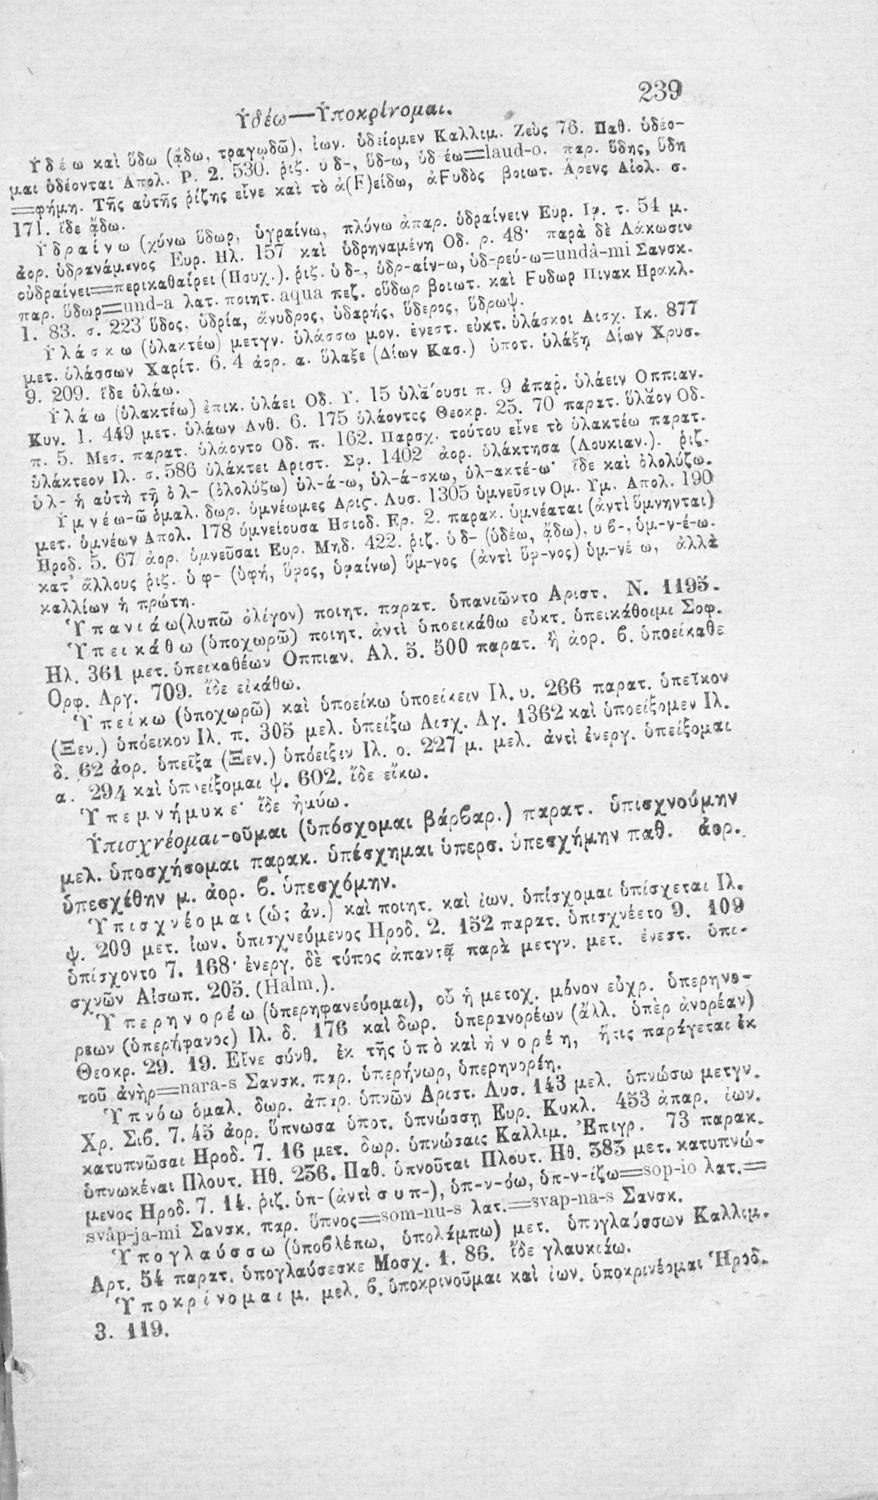 239
Ὑδέω—Ὑποκρίνομαι.
Ὑδέω καὶ ὕδω (ᾄδω, τραγῳδῶ), ἰων. ὑδείομεν Καλλιμ. Ζεὺς 76. Παθ. ὑδέο-
μαι ὑδέονται Απολ. Ρ. 2. 530. ῥιζ. ὑδ-, ὕδ-ω, ὑδ-έω=laud-o. παρ. ὕδης, ὕδη
=φήμη. Τῆς αὐτῆς ῥίζης εἶνε καὶ τὸ ἀ(F)είδω, ἀFυδὸς βοιωτ. Ἄρενς Αἰολ. σ.
171. ἴδε ᾄδω.
Ὑδραίνω (χύνω ὕδωρ, ὑγραίνω, πλύνω ἀπαρ. ὑδραίνειν Ευρ. Ιφ. τ. 54 μ.
ἀορ. ὑδρανάμενος Ευρ. Ηλ. 157 καὶ ὑδρηναμένη Οδ. ρ. 48· παρὰ δὲ Λάκωσιν
οὐδραίνει=περικαθαίρει (Ησυχ.). ῥιζ. ὑδ-, ὑδρ-αίν-ω, ὑδ-ρεύ-ω=undâ-mi Σανσκ.
παρ. ὕδωρ=und-a λατ. ποιητ. aqua πεζ. οὔδωρ βοιωτ. καὶ Fυδωρ Πινακ Ηρακλ.
1. 83. σ. 223 ὕδος, ὑδρία, ἄνυδρος, ὑδαρής, ὕδερος, ὕδρωψ.
Ὑλάσκω (ὑλακτέω) μετγν. ὑλάσσω μον. ἐνεστ. εὐκτ. ὑλάσκοι Αισχ. Ικ. 877
μετ. ὑλάσσων Χαρίτ. 6. 4 ἀορ. α. ὕλαξε (Δίων Κασ.) ὑποτ. ὑλάξῃ Δίων Χρυσ.
9. 209. ἴδε ὑλάω.
Ὑλάω (ὑλακτέω) ἐπικ. ὑλάει Οδ. Υ. 15 ὑλάουσι π. 9 ἀπαρ. ὑλάειν Οππιαν.
Κυν. 1. 449 μετ. ὑλάων Ανθ. 6. 175 ὑλάοντες Θεοκρ. 25. 70 παρατ. ὕλαον Οδ.
π. 5. Μεσ. παρατ. ὑλάοντο Οδ. π. 162. Παρσχ. τούτου εἶνε τὸ ὑλακτέω παρατ.
ὑλάκτεον Ιλ. σ. 586 ὑλάκτει Αριστ. Σφ. 1402 ἀορ. ὑλάκτησα (Λουκιαν.). ῥιζ.
ὑλ- ἡ αὐτὴ τῇ ὀλ- (ὀλολύζω) ὑλ-ά-ω, ὑλ-ά-σκω, ὑλ-ακτέ-ω· ἴδε καὶ ὀλολύζω.
Ὑμνέω-ῶ ὁμαλ. δωρ. ὑμνέωμες Αρις. Λυσ. 1305 ὑμνεῦσιν Ομ. Υμ. Απολ. 190
μετ. ὑμνέων Απολ. 178 ὑμνείουσα Ησιοδ. Ερ. 2. παρακ. ὑμνέαται (ἀντὶ ὕμνηνται)
Ηροδ. 5. 67 ἀορ. ὑμνεῦσαι Ευρ. Μηδ. 422. ῥιζ. ὑδ- (ὑδέω, ᾄδω), υϐ-, ὑμ-ν-έ-ω.
κατ' ἄλλους ῥιζ. ὑφ- (ὑφή, ὕφος, ὑφαίνω) ὕμ-νος (ἀντὶ ὕφ-νος) ὑμ-νέω, ἀλλὰ
καλλίων ἡ πρώτη.
Ὑπανιάω(λυπῶ ὀλίγον) ποιητ. παρατ. ὑπανιῶντο Αριστ. Ν. 1195.
Ὑπεικάθω (ὑποχωρῶ) ποιητ. ἀντὶ ὑποεικάθω εὐκτ. ὑπεικάθοιμι Σοφ.
Ηλ. 361 μετ. ὑπεικαθέων Οππιαν. Αλ. 5. 500 παρατ. ἢ ἀορ. ϐ. ὑποείκαθε
Ορφ. Αργ. 709. ἴδε εἰκάθω.
Ὑπείκω (ὑποχωρῶ) καὶ ὑποείκω ὑποείκειν Ιλ. υ. 266 παρατ. ὑπεῖκον
(Ξεν.) ὑπόεικον Ιλ. π. 305 μελ. ὑπείξω Αισχ. Αγ. 1362 καὶ ὑποείξομεν Ιλ.
δ. 62 ἀορ. ὑπεῖξα (Ξεν.) ὑπόειξεν Ιλ. ο. 227 μ. μελ. ἀντὶ ἐνεργ. ὑπείξομαι
α. 294 καὶ ὑποείξομαι ψ. 602. ἴδε εἴκω.
Ὑπεμνήμυκε· ἴδε ἡμύω.
Ὑπισχνέομαι-οῦμαι (ὑπόσχομαι βάρϐαρ.) παρατ. ὑπισχνούμην
μελ. ὑποσχήσομαι παρακ. ὑπέσχημαι ὑπερσ. ὑπεσχήμην παθ. ἀορ.
ὑπεσχέθην μ. ἀορ. ϐ. ὑπεσχόμην.
Ὑπισχνέομαι (ὡς ἀν.) καὶ ποιητ. καὶ ἰων. ὑπίσχομαι ὑπίσχεται Ιλ.
ψ. 209 μετ. ἰων. ὑπισχνεύμενος Ηροδ. 2. 152 παρατ. ὑπισχνέετο 9. 109
ὑπίσχοντο 7. 168· ἐνεργ. δὲ τύπος ἀπαντᾷ παρὰ μετγν. μετ. ἐνεστ. ὑπι-
σχνῶν Αἰσωπ. 205. (Halm.).
Ὑπερηνορέω (ὑπερηφανεύομαι), οὗ ἡ μετοχ. μόνον εὔχρ. ὑπερηνο-
ρέων (ὑπερήφανος) Ιλ. δ. 176 καὶ δωρ. ὑπερανορέων (ἄλλ. ὑπὲρ ἀνορέαν)
Θεοκρ. 29. 19. Εἶνε σύνθ. ἐκ τῆς ὑπὸ καὶ ἠνορέη, ἥτις παράγεται ἐκ
τοῦ ἀνὴρ=nara-s Σανσκ. παρ. ὑπερήνωρ, ὑπερηνορέη.
Ὑπνόω ὁμαλ. δωρ. ἀπαρ. ὑπνῶν Αριστ. Λυσ. 143 μελ. ὑπνώσω μετγν.
Χρ. Σιϐ. 7. 45 ἀορ. ὕπνωσα ὑποτ. ὑπνώσσῃ Ευρ. Κυκλ. 453 ἀπαρ. ἰων.
κατυπνῶσαι Ηροδ. 7. 16 μετ. δωρ. ὑπνώσαις Καλλιμ. Ἐπιγρ. 73 παρακ.
ὑπνωκέναι Πλουτ. Ηθ. 236. Παθ. ὑπνοῦται Πλουτ. Ηθ. 383 μετ. κατυπνώ-
μενος Ηροδ. 7. 14. ῥιζ. ὑπ-(ἀντὶ συπ-), ὑπ-ν-όω, ὑπ-ν-ίζω=sop-io λατ.=
svâp-ja-mi Σανσκ. παρ. ὕπνος=som-nu-s λατ.=svap-na-s Σανσκ.
Ὑπογλαύσσω (ὑποϐλέπω, ὑπολάμπω) μετ. ὑπογλαύσσων Καλλιμ.
Αρτ. 54 παρατ. ὑπογλαύσεσκε Μοσχ. 1. 86. ἴδε γλαυκιάω.
Ὑποκρίνομαι μ. μελ. ϐ. ὑποκρινοῦμαι καὶ ἰων. ὑποκρινέομαι Ἡροδ.
3. 119.